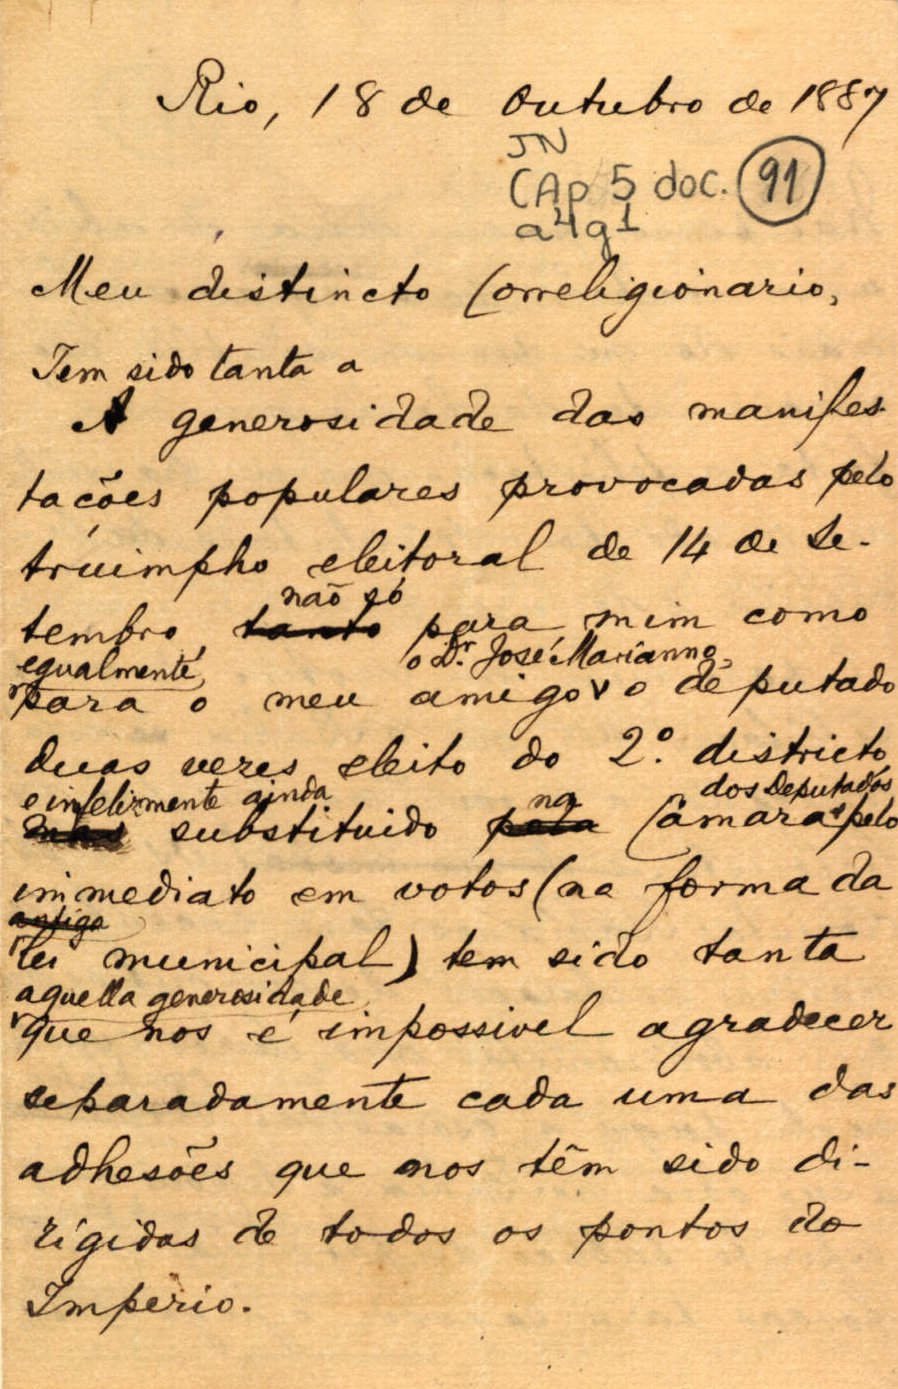 Rio, 18 de Outubro de 1887
JN
CAp 5 doc. 91
a4g1
Meu distincto Correligionario,
Tem sido tanta a
A generosidade das manifes-
tações populares provocadas pelo
truimpho eleitoral de 14 de Se-
não só
tembro, tanto para mim como
egualmente, o Dr. José Marianno,
para o meu amigo o deputado
duas vezes eleito do 2º. districto
e infelizmente ainda na dos Deputados
mas substituido pela Câmara pelo
immediato em votos (na forma da
antiga
lei municipal) tem sido tanta
aquella generosidade
que nos é impossivel agradecer
separadamente cada uma das
adhesões que nos têm sido di-
rigidas de todos os pontos do
Imperio.